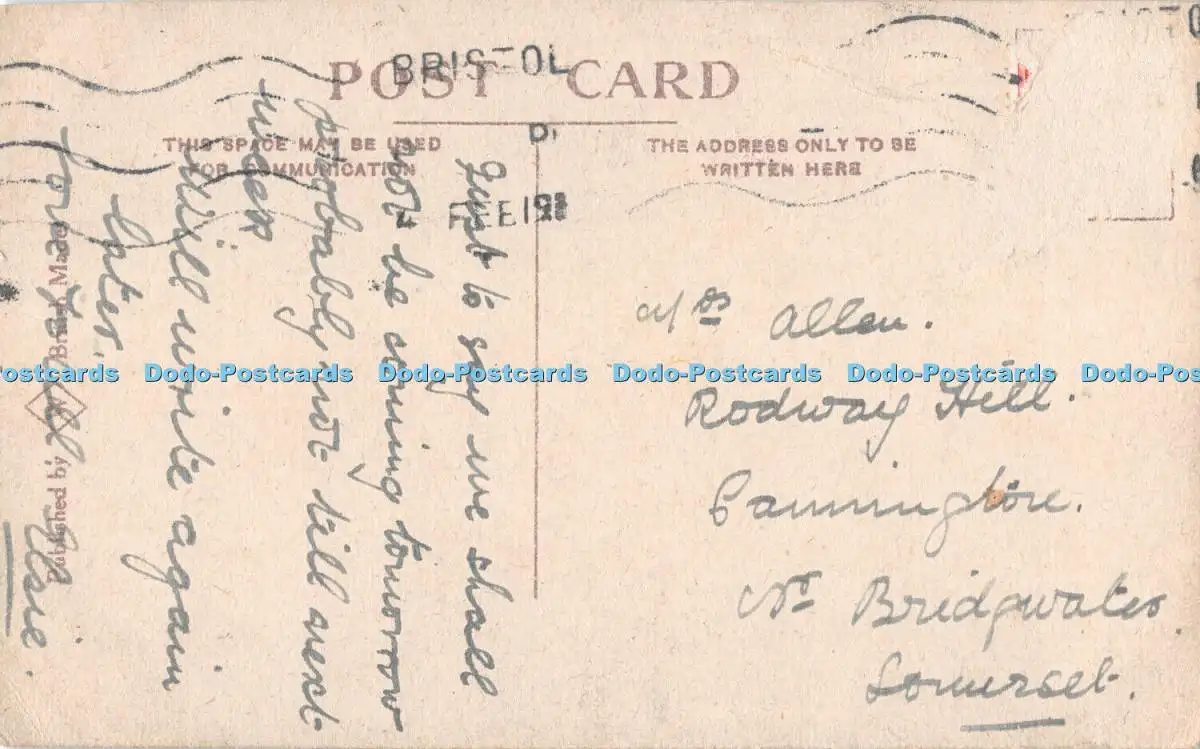 POST CARD
BRISTOL
THIS SPACE MAY BE USED
FOR COMMUNICATION
THE ADDRESS ONLY TO BE
WRITTEN HERE
Just to say we shall
not be coming tomorrow
probably not till next
week
Will write again
later.
Elsie.
Published by
Mrs Allen.
Rodway Hill.
Cannington.
Nr Bridgwater
Somerset.
Dodo-Postcards Dodo-Postcards Dodo-Postcards Dodo-Postcards